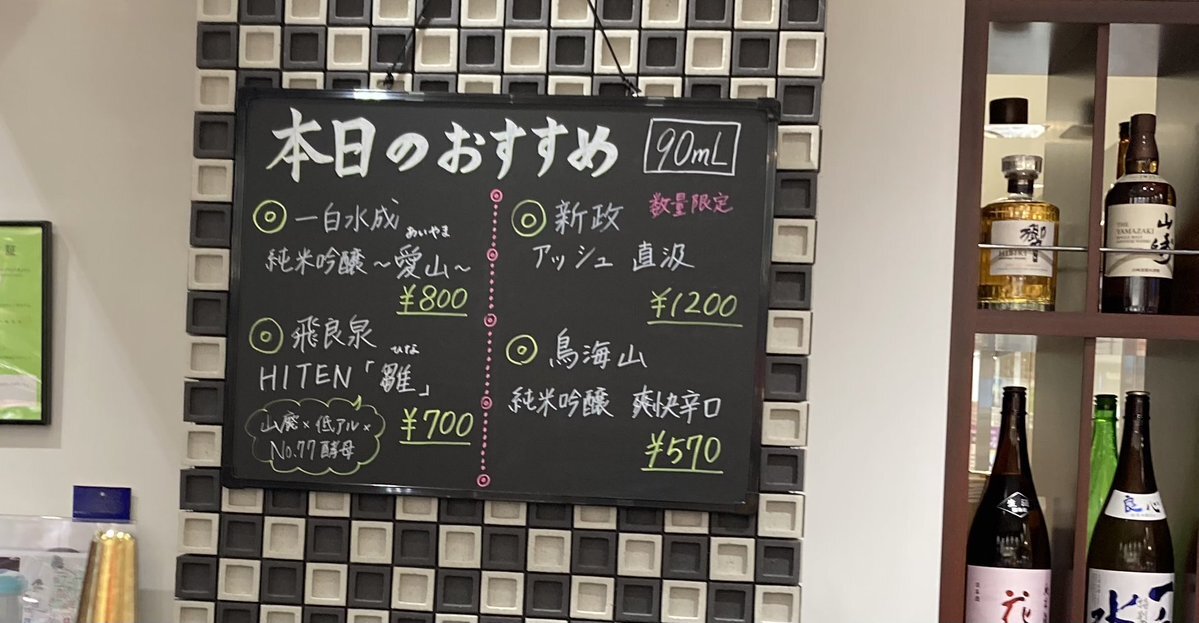 本日のおすすめ
90mL
一白水成
あいやま
純米吟醸～愛山～
¥800
飛良泉
ひな
HITEN「雛」
山廃×低アル×
No.77酵母
¥700
数量限定
新政
アッシュ 直汲
¥1200
鳥海山
純米吟醸 爽快辛口
¥570
響
HIBIKI
THE
YAMAZAKI
山崎
良心
花
水